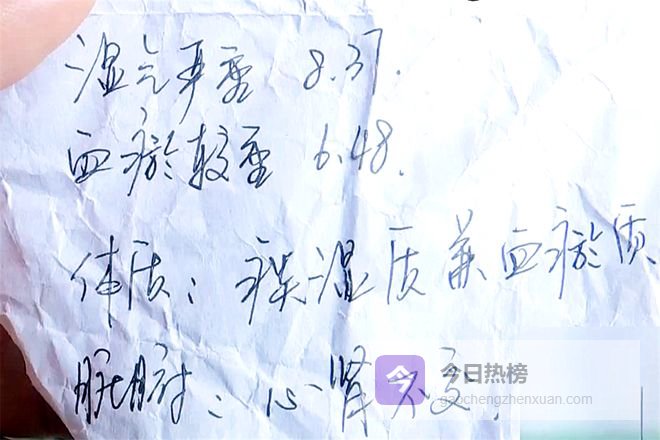 湿气严重 8.37.
血瘀较重 6.48.
体质：痰湿质兼血瘀质
脏腑：心肾不交.
今日热榜
gaochengzhenxuan.com